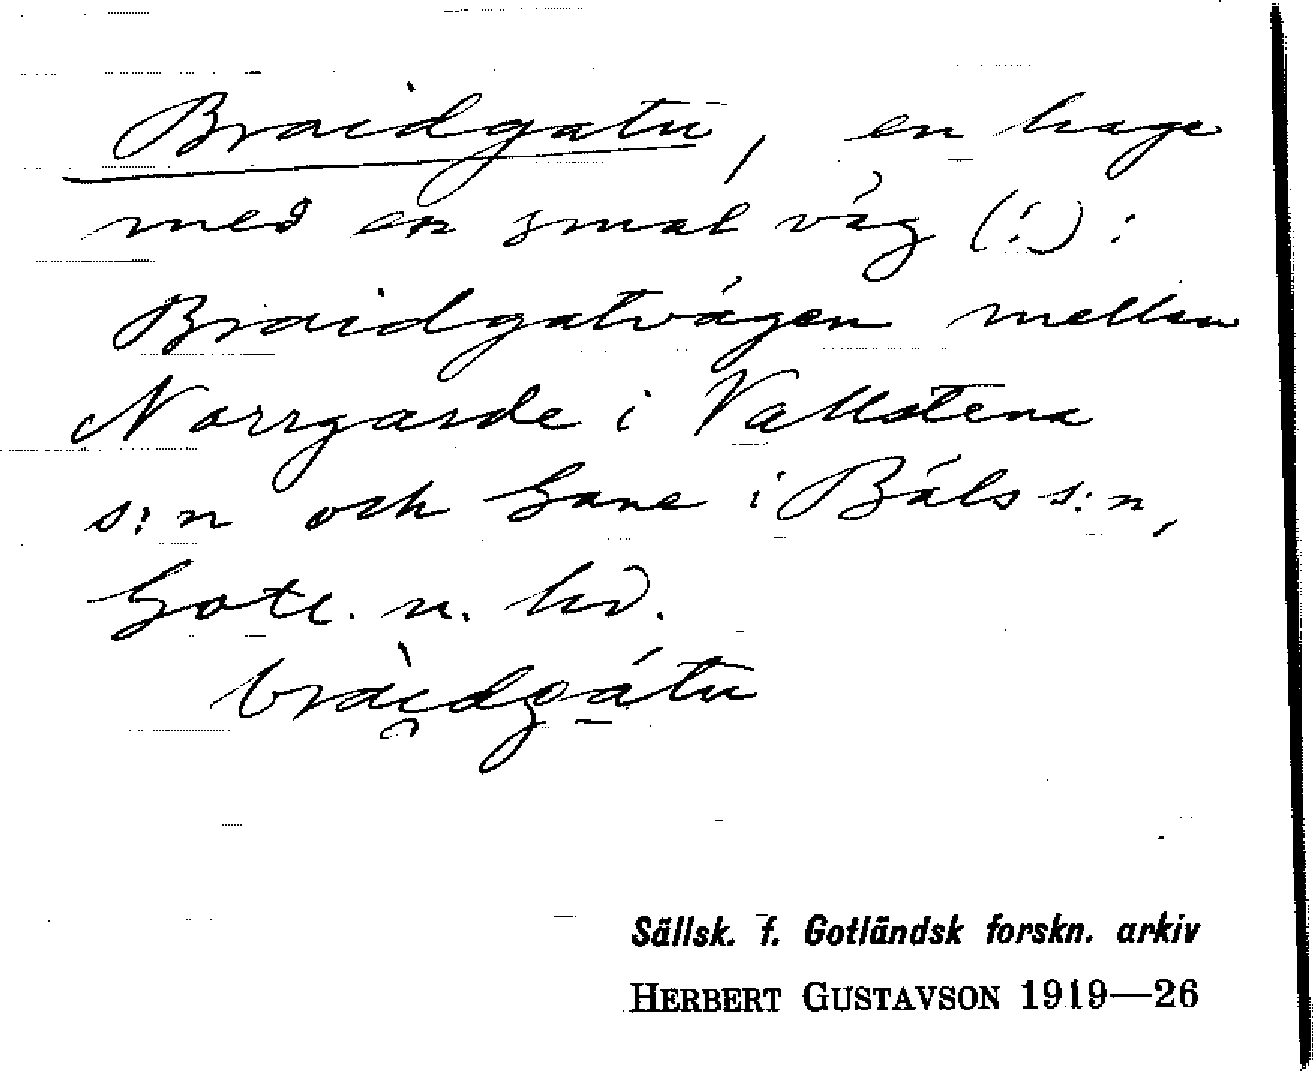 Braidgatu, en hage
med en smal väg (:) :
Braidgatvägen mellan
Norrgarde i Vallstena
s:n och Gane i Bäls s:n,
Gotl. n. hd.
bràidgátu
Sällsk. f. Gotländsk forskn. arkiv
HERBERT GUSTAVSON 1919—26